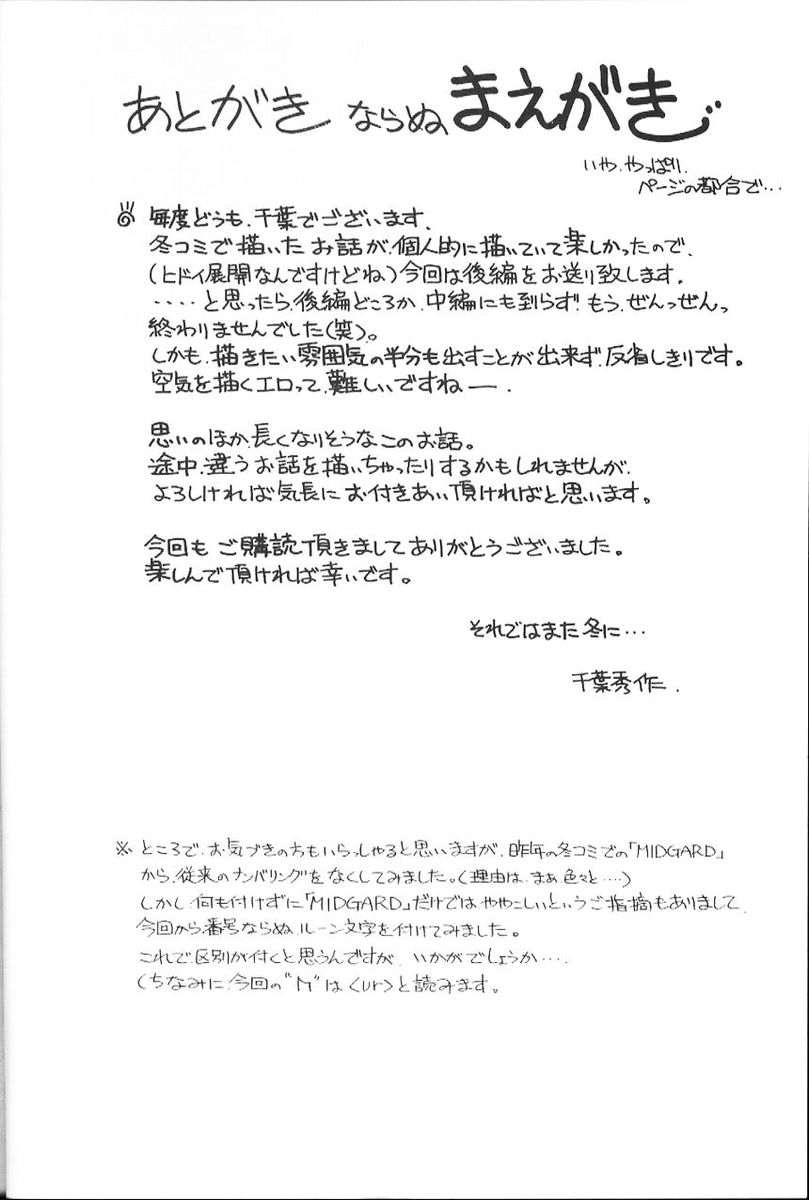 あとがき ならぬ まえがき
いや、やっぱり、
ページの都合で…
毎度どうも、千葉でございます、
冬コミで描いたお話が、個人的に描いていて楽しかったので、
(ヒドイ展開なんですけどね)今回は後編をお送り致します、
・・・・と思ったら、後編どころか、中編にも到らず!もう、ぜんっぜんっ
終わりませんでした(笑)。
しかも、描きたい雰囲気の半分も出すことが出来ず、反省しきりです。
空気を描くエロって、難しいですねー、
思いのほか、長くなりそうなこのお話。
途中、違うお話を描いちゃったりするかもしれませんが、
よろしければ気長にお付きあい頂ければと思います。
今回も ご購読頂きましてありがとうございました。
楽しんで頂ければ幸いです。
それではまた冬に…
千葉秀作、
※ところで、お気づきの方もいらっしゃると思いますが、昨年の冬コミでの「MIDGARD」
から、従来のナンバリングをなくしてみました。(理由は、まぁ色々と・・・・)
しかし何も付けずに「MIDGARD」だけでは、ややこしいというご指摘もありまして、
今回から番号ならぬ、ルーン文字を付けてみました。
これで区別が付くと思うんですが、いかがでしょうか・・・・
(ちなみに、今回の"ᚢ"は<ur>と読みます。